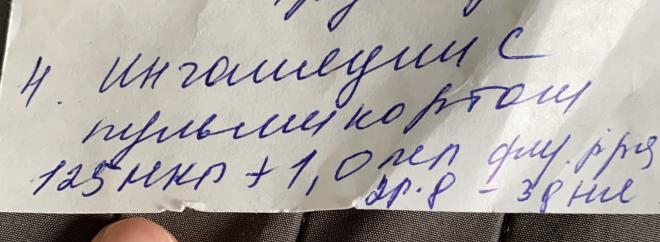 4. Ингаляции с
пульмикортом
125 мкг + 1,0 мл физ. р-ра
2р. д - 3 дня